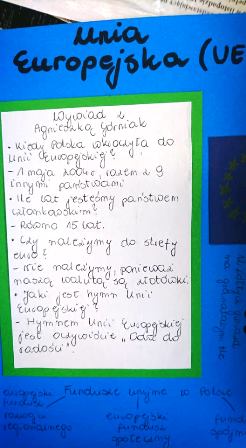 Unia
Europejska (UE
Wywiad z
Agnieszką Górniak
• Kiedy Polska wkroczyła do
Unii Europejskiej?
- 1 maja 2004r., razem z 9
innymi państwami
• Ile lat jesteśmy państwem
członkowskim?
- Równo 15 lat.
• Czy należymy do strefy
euro?
- Nie należymy, ponieważ
naszą walutą są złotówki.
• Jaki jest hymn Unii
Europejskiej?
- Hymnem Unii Europejskiej
jest oczywiście „Oda do
radości".
Fundusze unijne w Polsce
europejski
fundusz
rozwoju
regionalnego
europejski
fundusz
społeczny